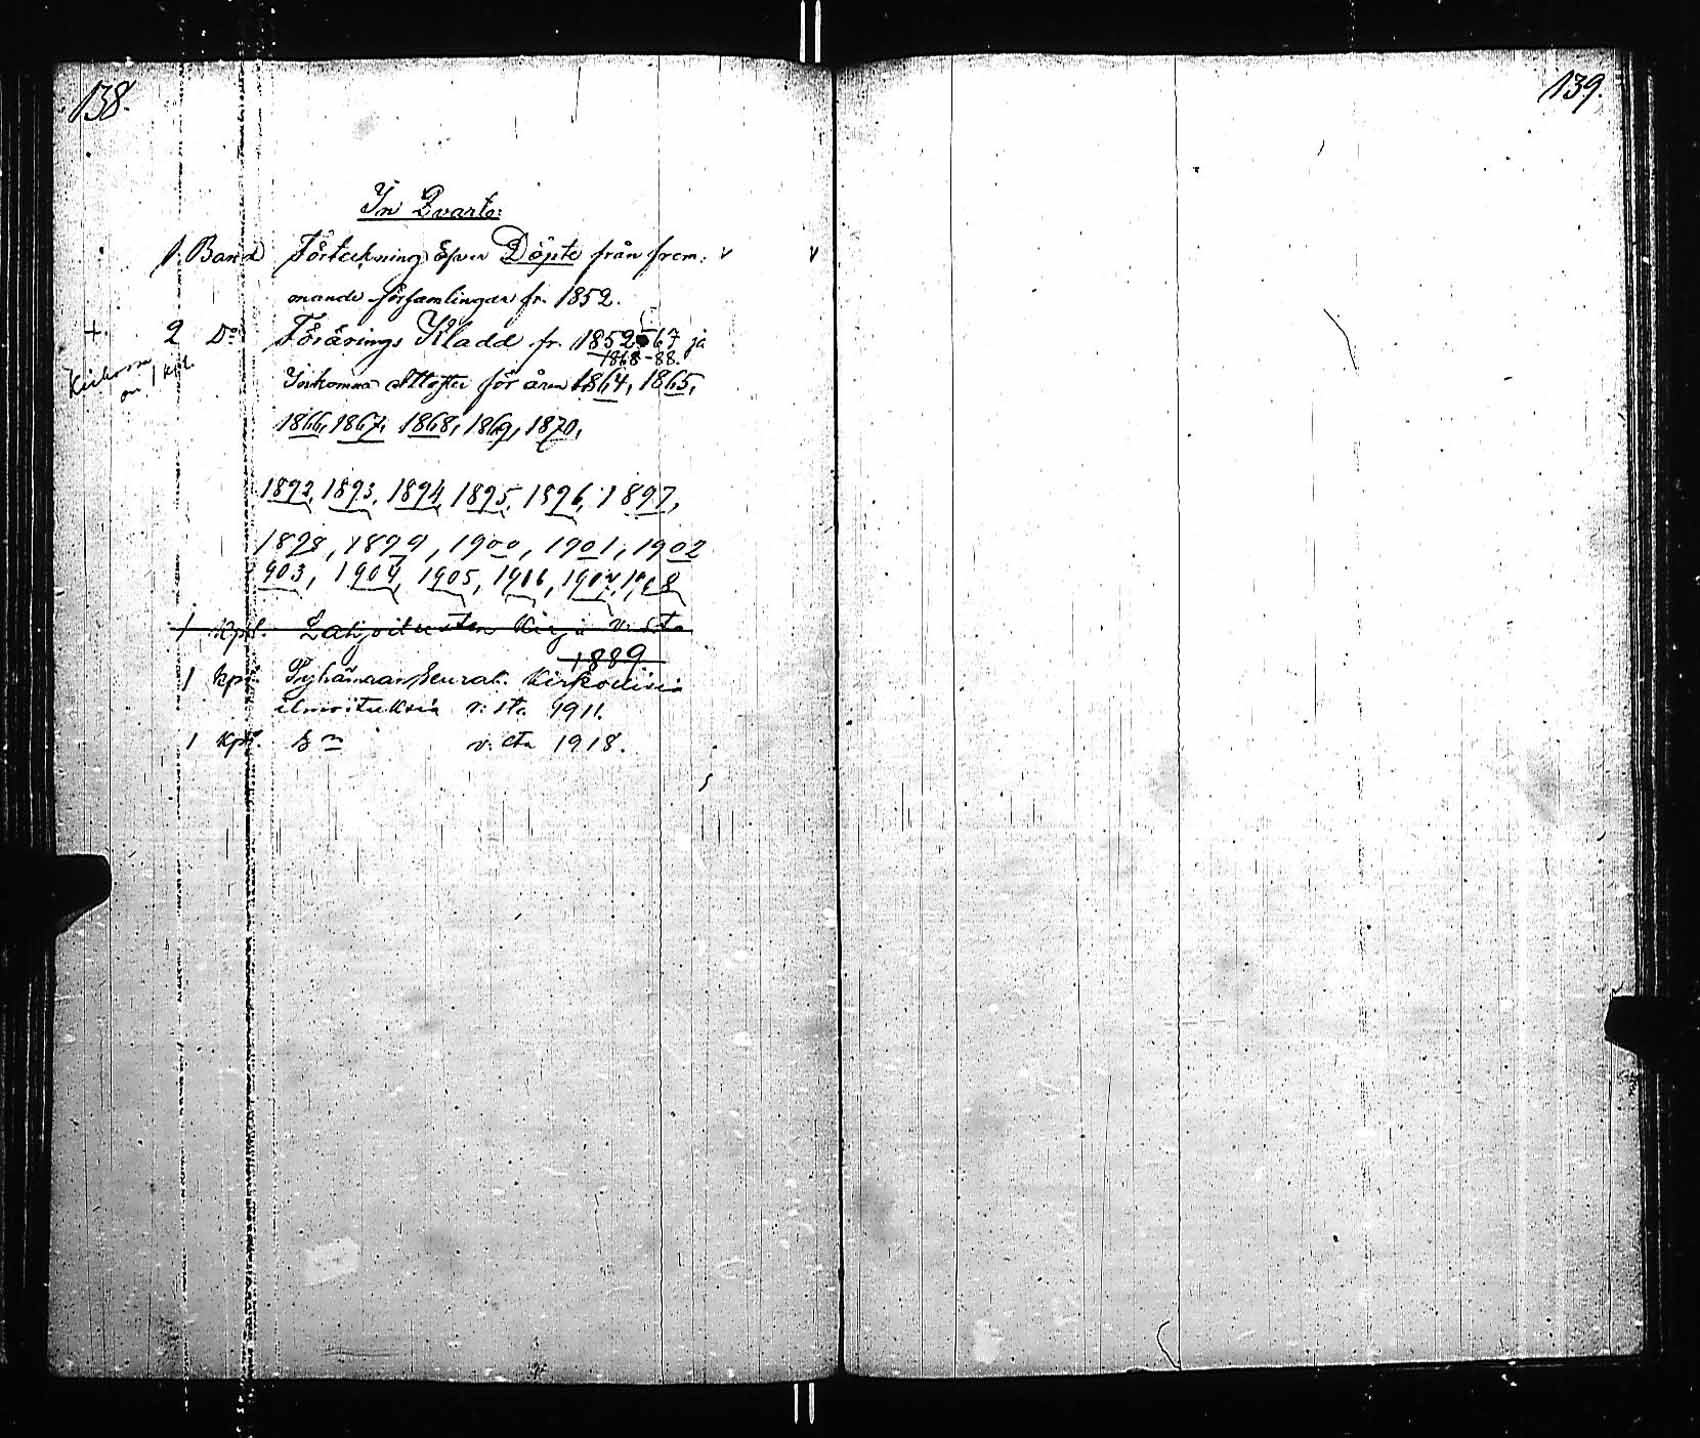 138.
In Qvarto:
1. Band Förteckning öfver Döpte från frem-
mande församlingar fr. 1852.
+. 2 Do Förärings Kladd fr. 1852-67 ja
1868-88.
Inkomna Attester för åren 1864, 1865,
on 1 kpl.
1866, 1867, 1868, 1869, 1870,
1892, 1893, 1894, 1895, 1896, 1897,
1898, 1899, 1900, 1901, 1902
1903, 1904, 1905, 1906, 1907, 1908
1 kpl. Lahjoitusten Kirja v:sta
1889
1 kpl. Pyhämaan seurak. Kirkollisia
ilmoituksia v:sta 1911.
1 kpl. S n v:sta 1918.
139.